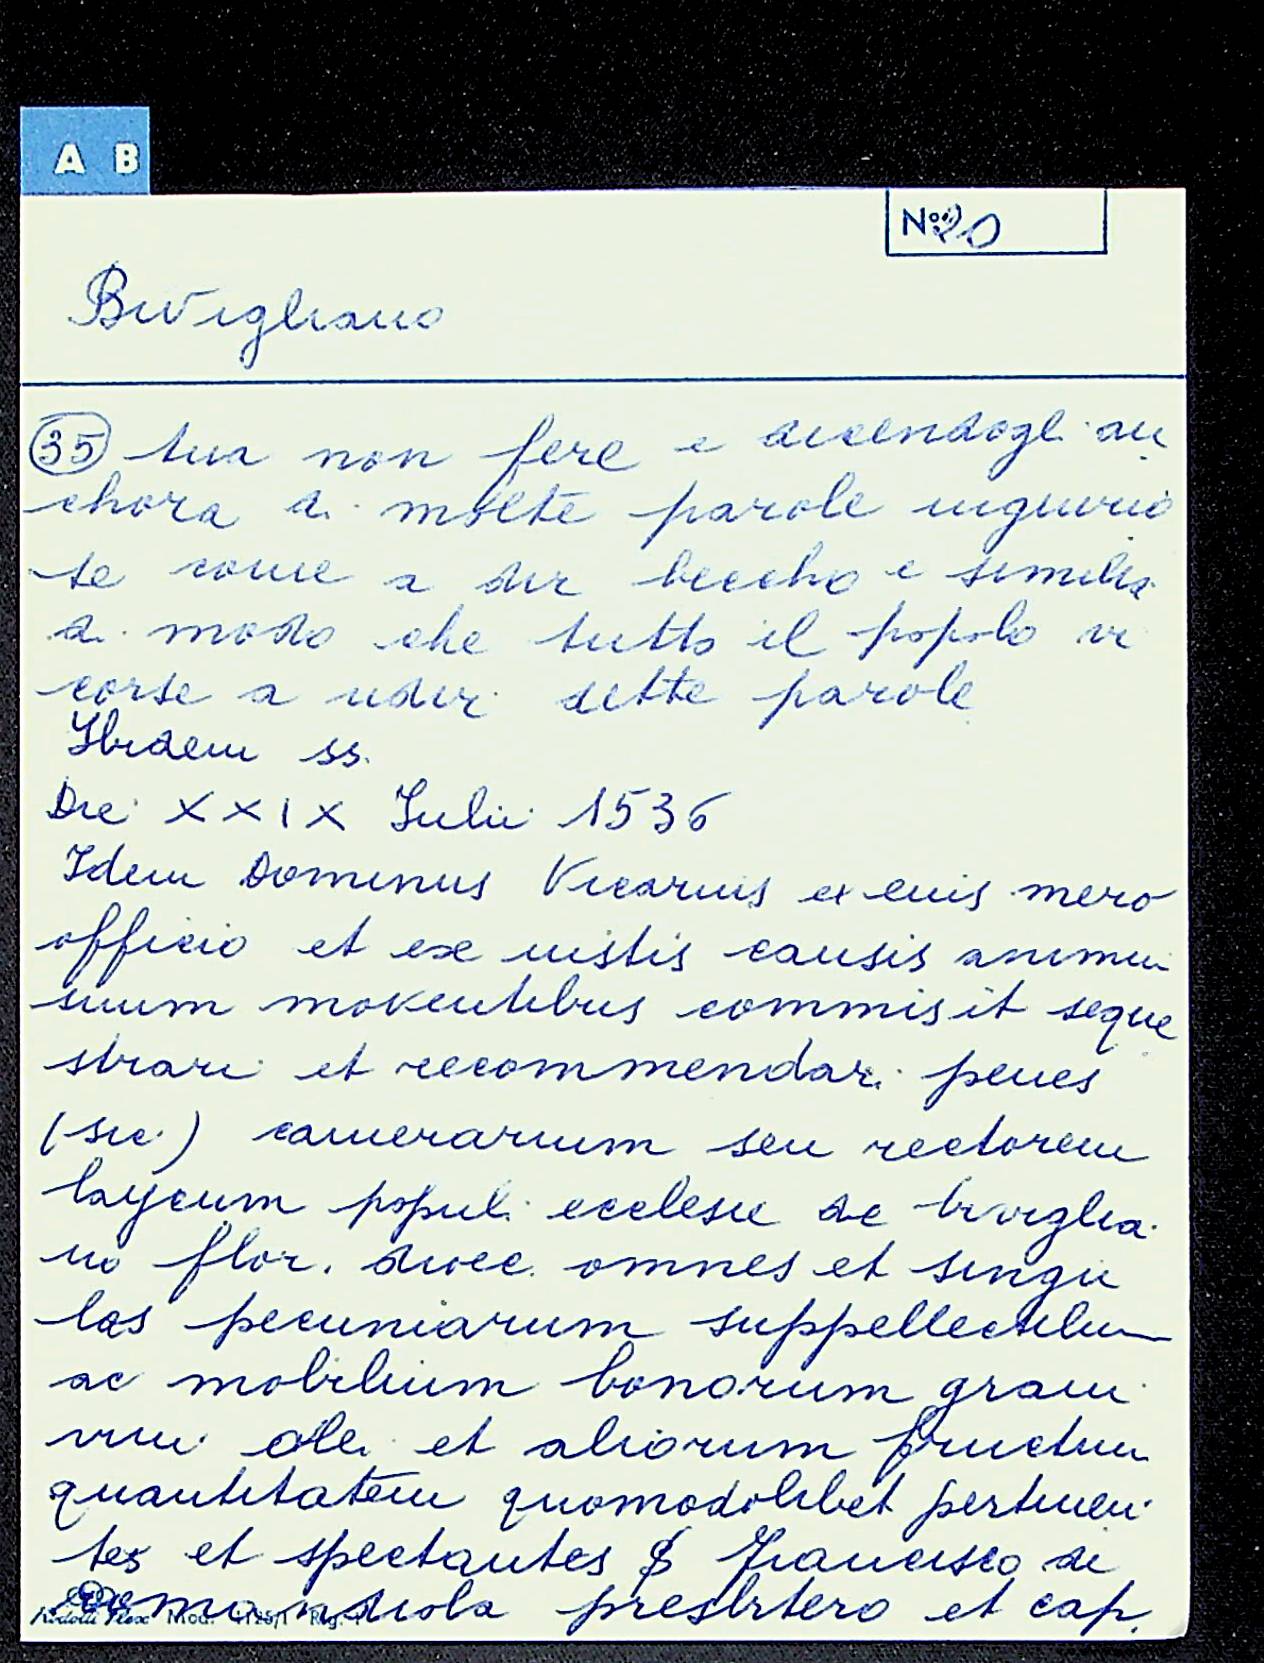 A B
No 20
Bivigliano
35 tua non fere e dicendogli an
chora di molte parole ingiurio
se come a dir beccho e similia
di modo che tutto il popolo vi
corse a udir dette parole
Ibidem ss.
Die XXIX Iulii 1536
Idem Dominus Vicarius ex eius mero
officio et ex iustis causis animum
suum moventibus commisit seque
strari et recommendari penes
(sic) camerarium seu rectorem
laycum populi ecclesie de biviglia
no flor. dioec. omnes et singu
las pecuniarum suppellectilium
ac mobilium bonorum grani
vini olei et aliorum fructuum
quantitatem quomodolibet pertinen
tes et spectantes $ Francisco de
presbitero et cap.
Mod. 4125/1